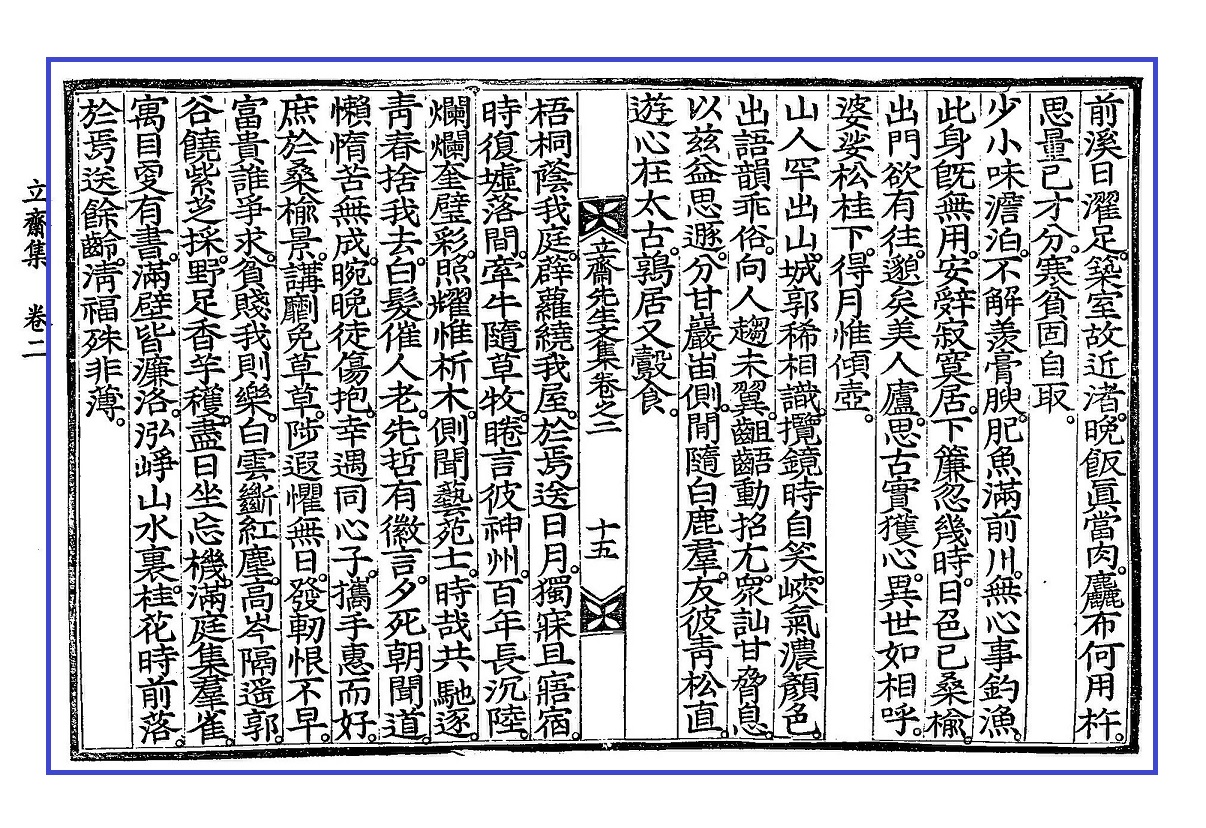 前溪日濯足。築室故近渚。晩飯眞當肉。麤布何用杵。
思量已才分。寒貧固自取。
少小味澹泊。不解羨膏腴。肥魚滿前川。無心事釣漁。
此身旣無用。安辤寂寞居。下簾忽幾時。日色已桑楡。
出門欲有往。邈矣美人廬。思古實獲心。異世如相呼。
婆娑松桂下。得月惟傾壺。
山人罕出山。城郭稀相識。攬鏡時自笑。峽氣濃顏色。
出語韻乖俗。向人趨未翼。齟齬動招尤。衆訕甘脅息。
以玆益思遯。分甘巖宙側。閒隨白鹿羣。友彼靑松直。
遊心在太古。鶉居又鷇食。
立齋先生文集卷之二
十五
梧桐蔭我庭。薜蘿繞我屋。於焉送日月。獨寐且寤宿。
時復墟落間。牽牛隨草牧。睠言彼神州。百年長沉陸。
爛爛奎璧彩。照耀惟析木。側聞藝苑士。時哉共馳逐。
靑春捨我去。白髮催人老。先哲有徽言。夕死朝聞道。
懶惰苦無成。晼晩徒傷抱。幸遇同心子。攜手惠而好。
庶於桑楡景。講劘免草草。陟遐懼無日。發軔恨不早。
富貴誰爭求。貧賤我則樂。白雲斷紅塵。高岑隔遥郭。
谷饒紫芝採。野足香芋穫。盡日坐忘機。滿庭集羣雀。
寓目爰有書。滿壁皆濂洛。泓崢山水裏。桂花時前落。
於焉送餘齡。淸福殊非薄。
立齋集 卷二